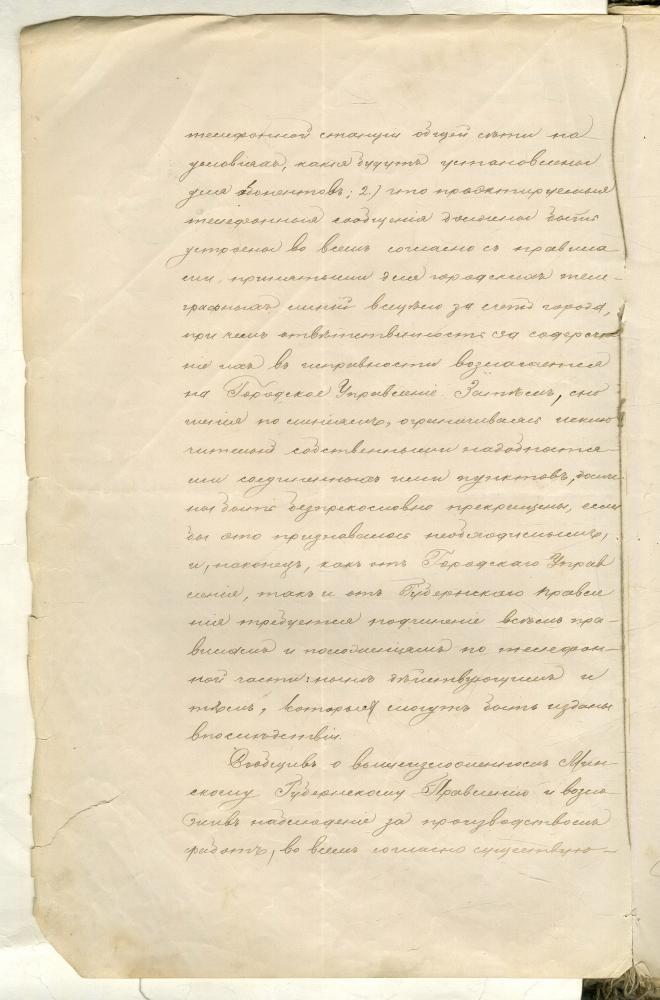 телефонной станціи общей сѣти на
условіяхъ, какія будутъ установлены
для абонентовъ; 2.) что проэктируемыя
телефонныя сообщенія должны быть
устроены во всемъ согласно съ правила-
ми, принятыми для городскихъ теле-
графныхъ линій всецѣло за счетъ города,
при чемъ отвѣтственность за содержа
ніе ихъ въ исправности возлагается
на Городское Управленіе. Затѣмъ, сно
шенія по линіямъ, ограничиваясь исклю
чительно собственными надобностя-
ми соединенныхъ ими пунктовъ, долж
ны быть безпрекословно прекращены, если
бы это признавалось необходимымъ,
и, наконецъ, какъ отъ Городскаго Управ
ленія, такъ и отъ Губернскаго Правле
нія требуется подчиненіе всѣмъ пра-
виламъ и положеніямъ по телефон-
ной части: нынѣ дѣйствующимъ и
тѣмъ, которыя могутъ быть изданы
впослѣдствіи.
Сообщивъ о вышеизложенномъ Мин-
скому Губернскому Правленію и возло
живъ наблюденіе за производствомъ
работъ, во всемъ согласно существую-